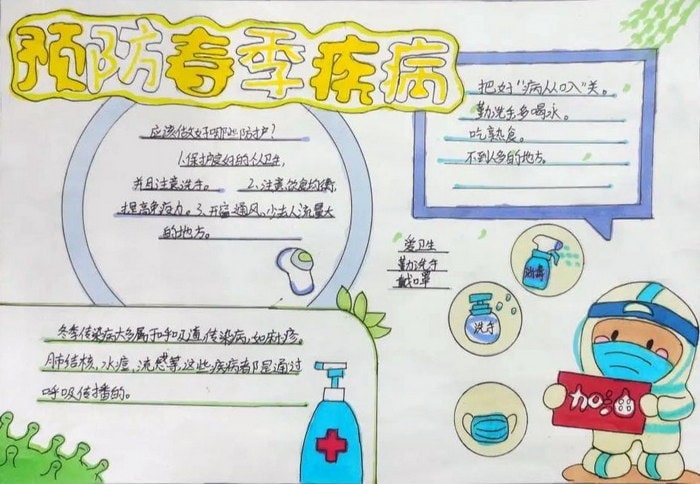 预防春季疾病
应该做好哪些防护？
1.保护良好的个人卫生，
并且注意洗手。 2、注意饮食均衡，
提高免疫力。3、开窗通风、少去人流量大
的地方。
把好“病从口入”关。
勤洗手多喝水。
吃熟食。
不到人多的地方。
爱卫生
勤洗手
戴口罩
消毒
洗手
加油
冬季传染病大多属于呼吸道传染病，如麻疹。
肺结核、水痘、流感等，这些疾病都是通过
呼吸传播的。